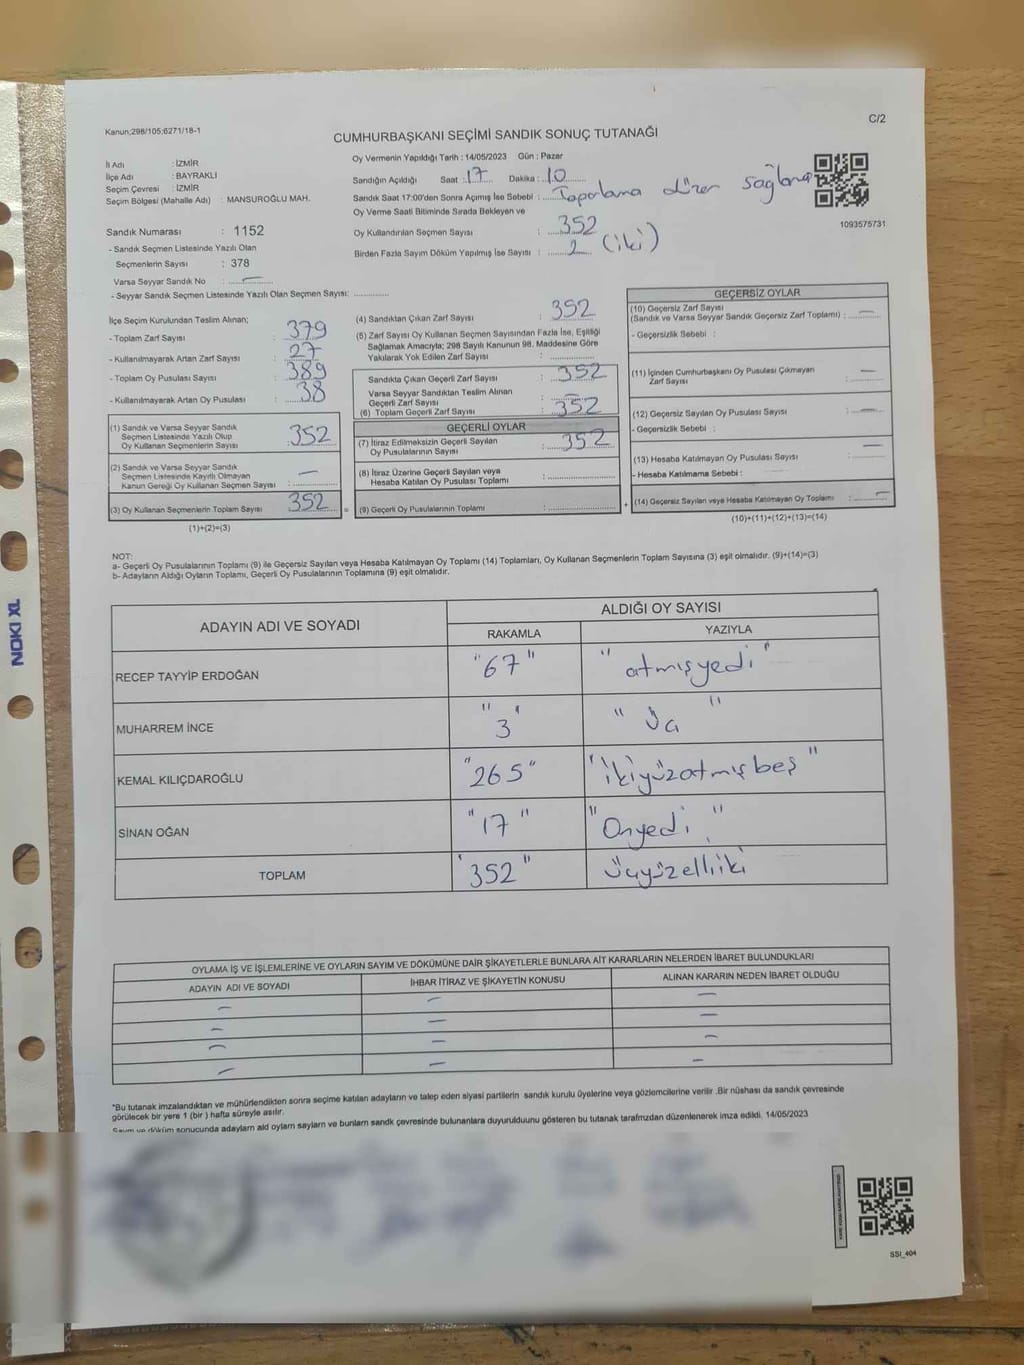 Kanun;298/105;6271/18-1
C/2
CUMHURBAŞKANI SEÇİMİ SANDIK SONUÇ TUTANAĞI
İl Adı : İZMİR
İlçe Adı : BAYRAKLI
Seçim Çevresi : İZMİR
Seçim Bölgesi (Mahalle Adı) : MANSUROĞLU MAH.
Sandık Numarası : 1152
- Sandık Seçmen Listesinde Yazılı Olan
Seçmenlerin Sayısı : 378
Varsa Seyyar Sandık No : —
- Seyyar Sandık Seçmen Listesinde Yazılı Olan Seçmen Sayısı:
Oy Vermenin Yapıldığı Tarih : 14/05/2023 Gün : Pazar
Sandığın Açıldığı Saat : 17 Dakika : 10
Sandık Saat 17:00'den Sonra Açımış İse Sebebi : Toparlama düzen sağlama
Oy Verme Saati Bitiminde Sırada Bekleyen ve
Oy Kullandırılan Seçmen Sayısı : 352
Birden Fazla Sayım Döküm Yapılmış İse Sayısı : 2 (iki)
1093575731
İlçe Seçim Kurulundan Teslim Alınan;
- Toplam Zarf Sayısı : 379
- Kullanılmayarak Artan Zarf Sayısı : 27
- Toplam Oy Pusulası Sayısı : 389
- Kullanılmayarak Artan Oy Pusulası : 38
(1) Sandık ve Varsa Seyyar Sandık
Seçmen Listesinde Yazılı Olup
Oy Kullanan Seçmenlerin Sayısı : 352
(2) Sandık ve Varsa Seyyar Sandık
Seçmen Listesinde Kayıtlı Olmayan
Kanun Gereği Oy Kullanan Seçmen Sayısı : —
(3) Oy Kullanan Seçmenlerin Toplam Sayısı : 352
(1)+(2)=(3)
=
(4) Sandıktan Çıkan Zarf Sayısı : 352
(5) Zarf Sayısı Oy Kullanan Seçmen Sayısından Fazla İse, Eşitliği
Sağlamak Amacıyla; 298 Sayılı Kanunun 98. Maddesine Göre
Yakılarak Yok Edilen Zarf Sayısı :
Sandıkta Çıkan Geçerli Zarf Sayısı : 352
Varsa Seyyar Sandıktan Teslim Alınan
Geçerli Zarf Sayısı : —
(6) Toplam Geçerli Zarf Sayısı : 352
GEÇERLİ OYLAR
(7) İtiraz Edilmeksizin Geçerli Sayılan
Oy Pusulalarının Sayısı : 352
(8) İtiraz Üzerine Geçerli Sayılan veya
Hesaba Katılan Oy Pusulası Toplamı :
(9) Geçerli Oy Pusulalarının Toplamı :
+
GEÇERSİZ OYLAR
(10) Geçersiz Zarf Sayısı
(Sandık ve Varsa Seyyar Sandık Geçersiz Zarf Toplamı) : —
- Geçersizlik Sebebi :
(11) İçinden Cumhurbaşkanı Oy Pusulası Çıkmayan
Zarf Sayısı : —
(12) Geçersiz Sayılan Oy Pusulası Sayısı : —
- Geçersizlik Sebebi :
(13) Hesaba Katılmayan Oy Pusulası Sayısı : —
- Hesaba Katılmama Sebebi :
(14) Geçersiz Sayılan veya Hesaba Katılmayan Oy Toplamı : —
(10)+(11)+(12)+(13)=(14)
NOT:
a- Geçerli Oy Pusulalarının Toplamı (9) ile Geçersiz Sayılan veya Hesaba Katılmayan Oy Toplamı (14) Toplamları, Oy Kullanan Seçmenlerin Toplam Sayısına (3) eşit olmalıdır. (9)+(14)=(3)
b- Adayların Aldığı Oyların Toplamı, Geçerli Oy Pusulalarının Toplamına (9) eşit olmalıdır.
ADAYIN ADI VE SOYADI
ALDIĞI OY SAYISI
RAKAMLA YAZIYLA
RECEP TAYYİP ERDOĞAN "67" "atmışyedi"
MUHARREM İNCE "3" "üç"
KEMAL KILIÇDAROĞLU "265" "ikiyüzatmışbeş"
SİNAN OĞAN "17" "Onyedi"
TOPLAM "352" üçyüzelliiki
OYLAMA İŞ VE İŞLEMLERİNE VE OYLARIN SAYIM VE DÖKÜMÜNE DAİR ŞİKAYETLERLE BUNLARA AİT KARARLARIN NELERDEN İBARET BULUNDUKLARI
ADAYIN ADI VE SOYADI İHBAR İTİRAZ VE ŞİKAYETİN KONUSU ALINAN KARARIN NEDEN İBARET OLDUĞU
— — —
— — —
— — —
— — —
*Bu tutanak imzalandıktan ve mühürlendikten sonra seçime katılan adayların ve talep eden siyasi partilerin sandık kurulu üyelerine veya gözlemcilerine verilir .Bir nüshası da sandık çevresinde
görülecek bir yere 1 (bir ) hafta süreyle asılır.
Sayım ve döküm sonucunda adayların ald oyların sayıların ve bunların sandk çevresinde bulunanlara duyurulduunu gösteren bu tutanak tarafmzdan düzenlenerek imza edildi. 14/05/2023
SSI_404
NOKI XL